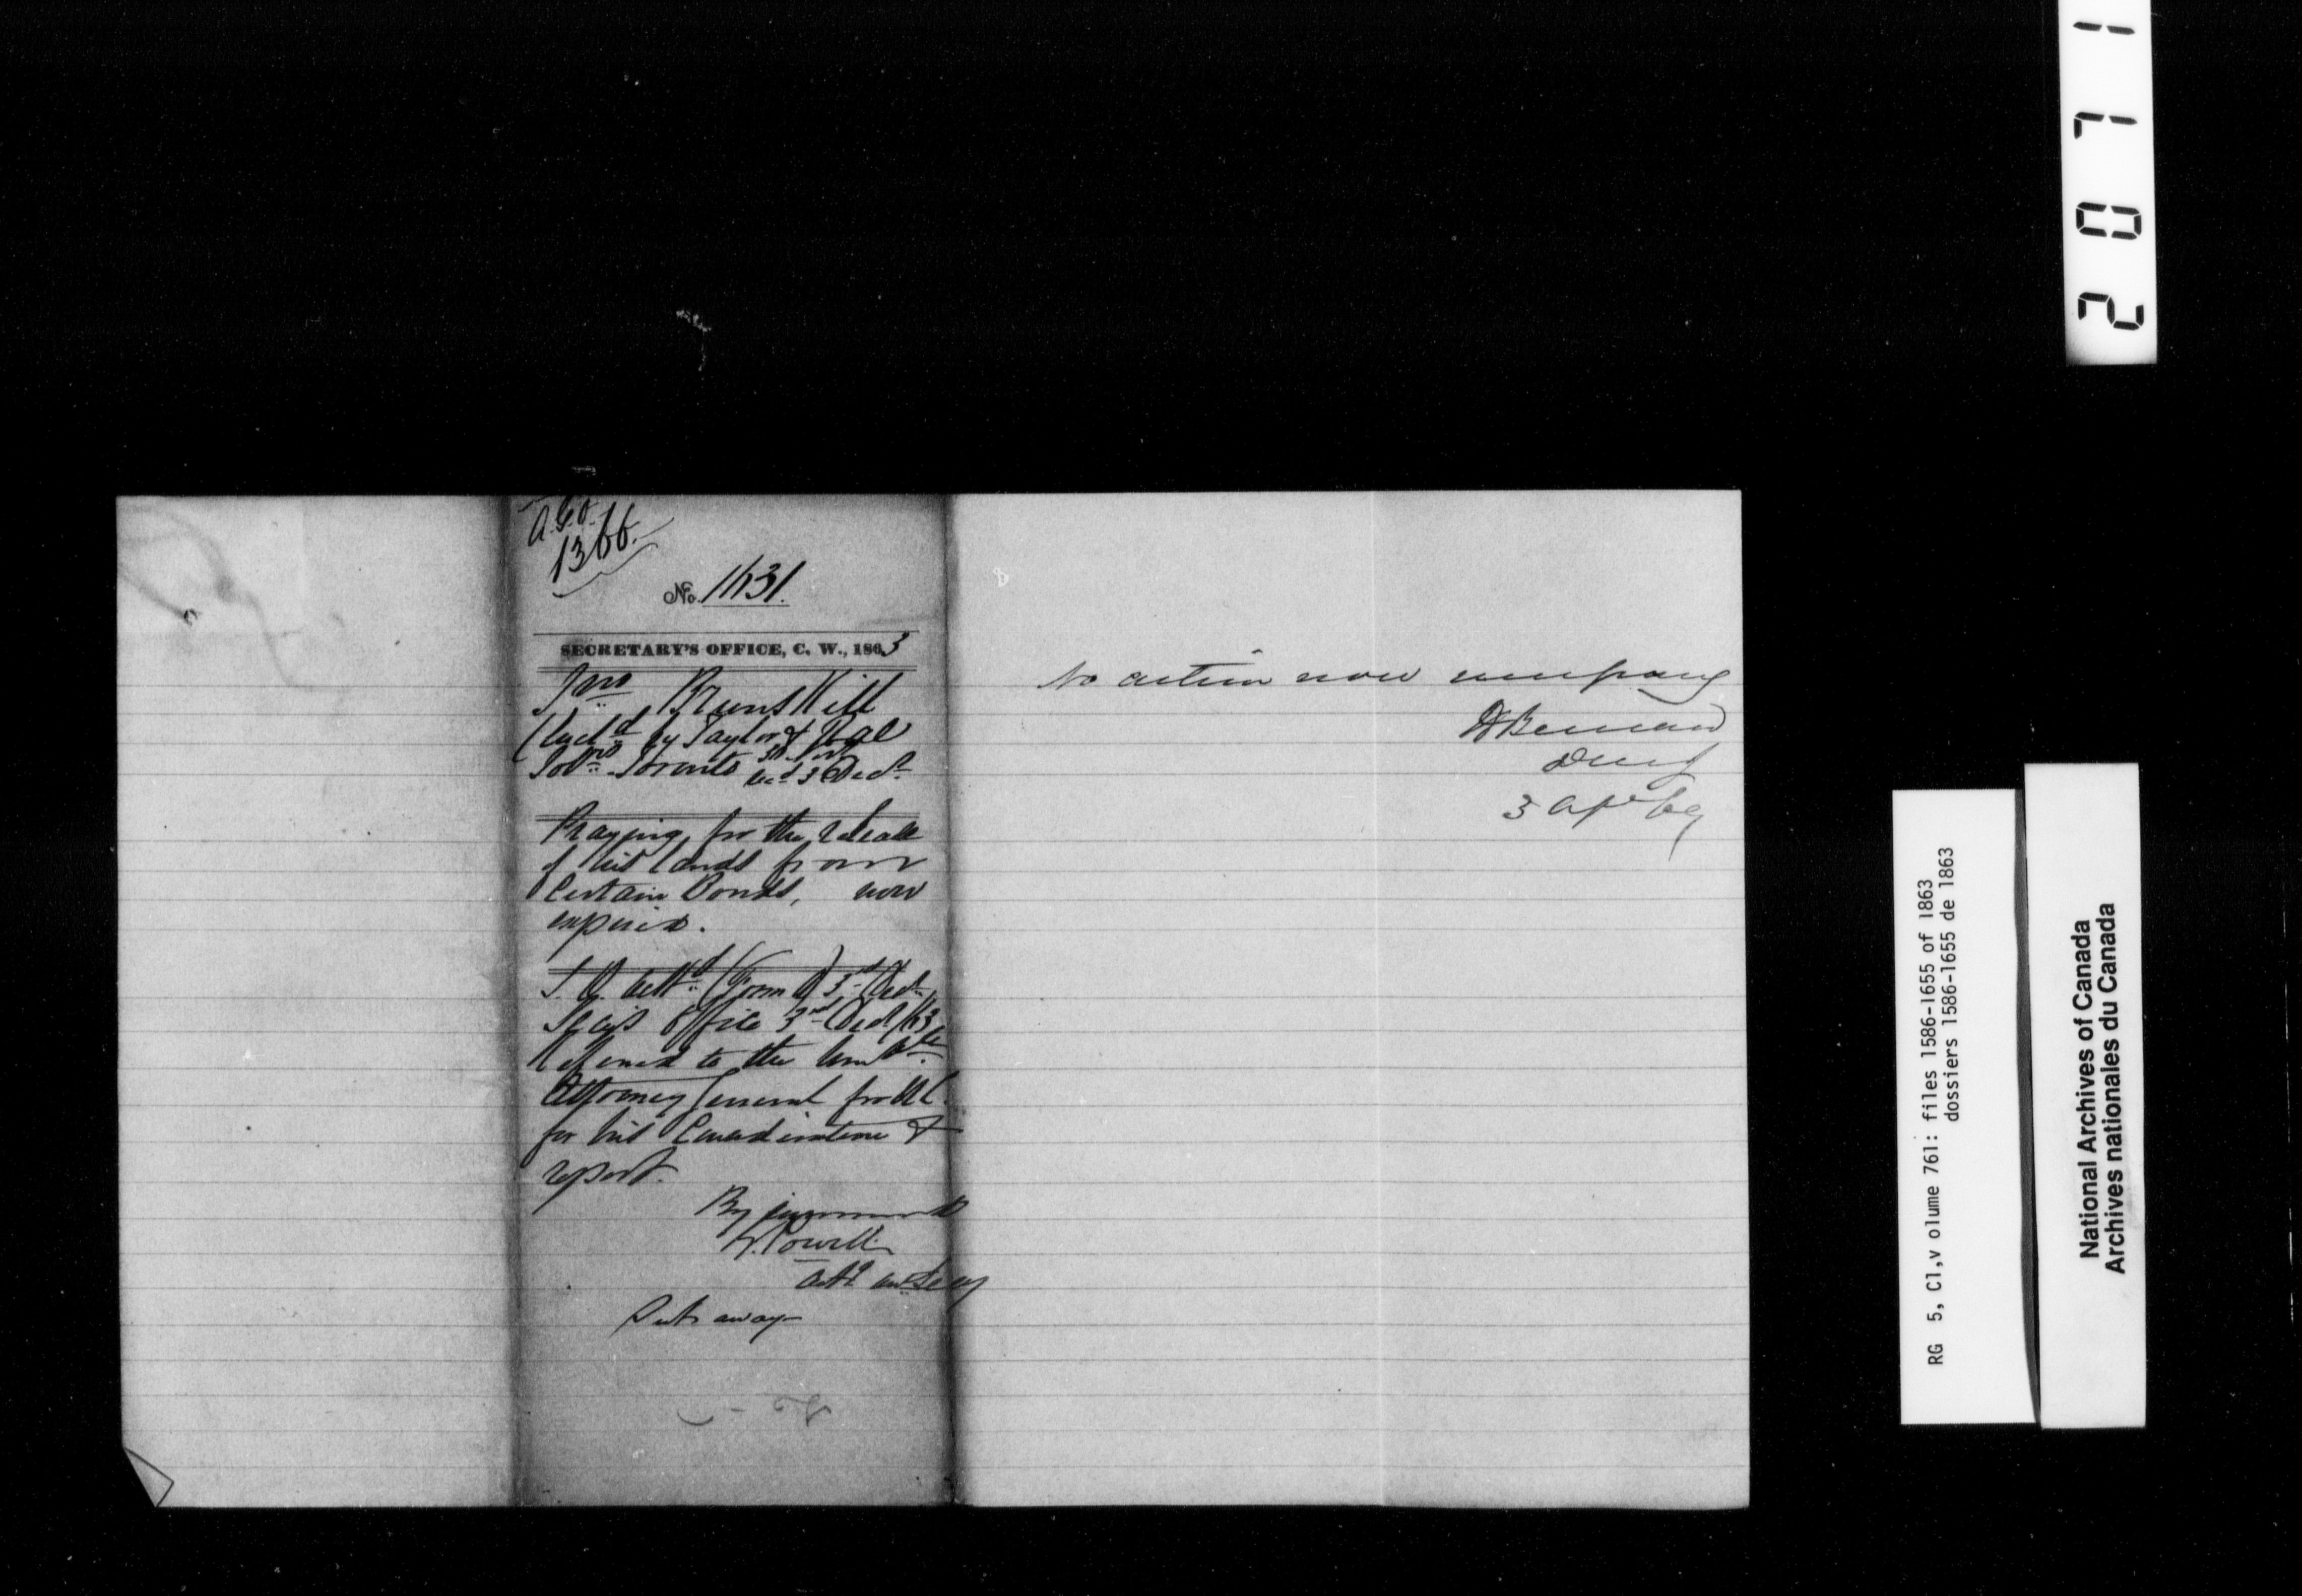 A.G.O.
1366.
No. 1631.
SECRETARY'S OFFICE, C. W., 1863
Jno Brunskill
by Taylor &
Toronto 30 Nov
Recd 3 Decr
Praying for the release
of his lands from
Certain Bonds, now
expired.
(Form) 3rd Decr
Secy's Office 3rd Decr/63
Referred to the Honble
Attorney General for U.C.
for his Consideration &
report.
By command
G. Powell
Actg Asst Secy
Put away
No action now necessary
H Bernard
3 Apl 69
2071
RG 5, C1,v olume 761: files 1586-1655 of 1863
dossiers 1586-1655 de 1863
National Archives of Canada
Archives nationales du Canada